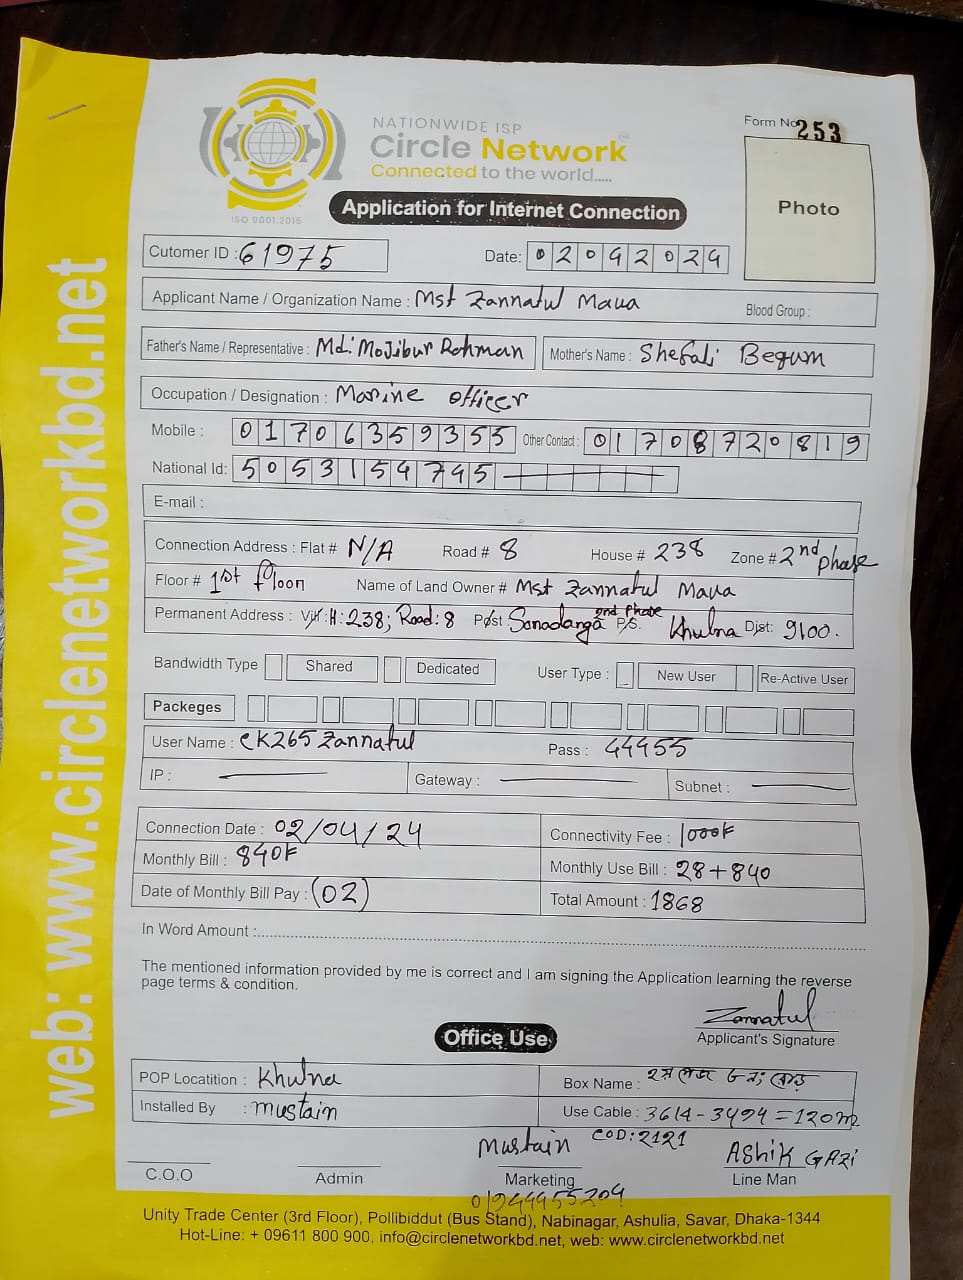 NATIONWIDE ISP
Circle Network
Connected to the world.....
ISO 9001:2015
Form No. 253
Photo
Application for Internet Connection
Cutomer ID : 61975
Date: 02042024
Applicant Name / Organization Name : Mst Zannatul Maua
Blood Group :
Father's Name / Representative : Md: Mojibur Rohman
Mother's Name : Shefali Begum
Occupation / Designation : Marine officer
Mobile : 01706359355
Other Contact : 01708720819
National Id: 5053154745
E-mail :
Connection Address : Flat # N/A Road # 8 House # 238 Zone # 2nd phase
Floor # 1st floor Name of Land Owner # Mst Zannatul Maua
Permanent Address : Vill: H: 238; Road: 8 Post Sonadanga 2nd Phase P/S. Khulna Dist: 9100.
Bandwidth Type Shared Dedicated User Type : New User Re-Active User
Packeges
User Name : CK265Zannatul Pass : 44955
IP : Gateway : Subnet :
Connection Date : 02/04/24
Connectivity Fee : 1000৳
Monthly Bill : 840৳
Monthly Use Bill : 28+840
Date of Monthly Bill Pay : (02)
Total Amount : 1868
In Word Amount :
The mentioned information provided by me is correct and I am signing the Application learning the reverse
page terms & condition.
Zannatul
Applicant's Signature
Office Use
POP Locatition : Khulna
Box Name : ২য় ফেজ ৮ নং রোড
Installed By : mustain
Use Cable : 3614-3494=120m
Mustain COD: 2121
Ashik Gazi
C.O.O
Admin
Marketing
Line Man
Unity Trade Center (3rd Floor), Pollibiddut (Bus Stand), Nabinagar, Ashulia, Savar, Dhaka-1344
Hot-Line: + 09611 800 900, info@circlenetworkbd.net, web: www.circlenetworkbd.net
web: www.circlenetworkbd.net